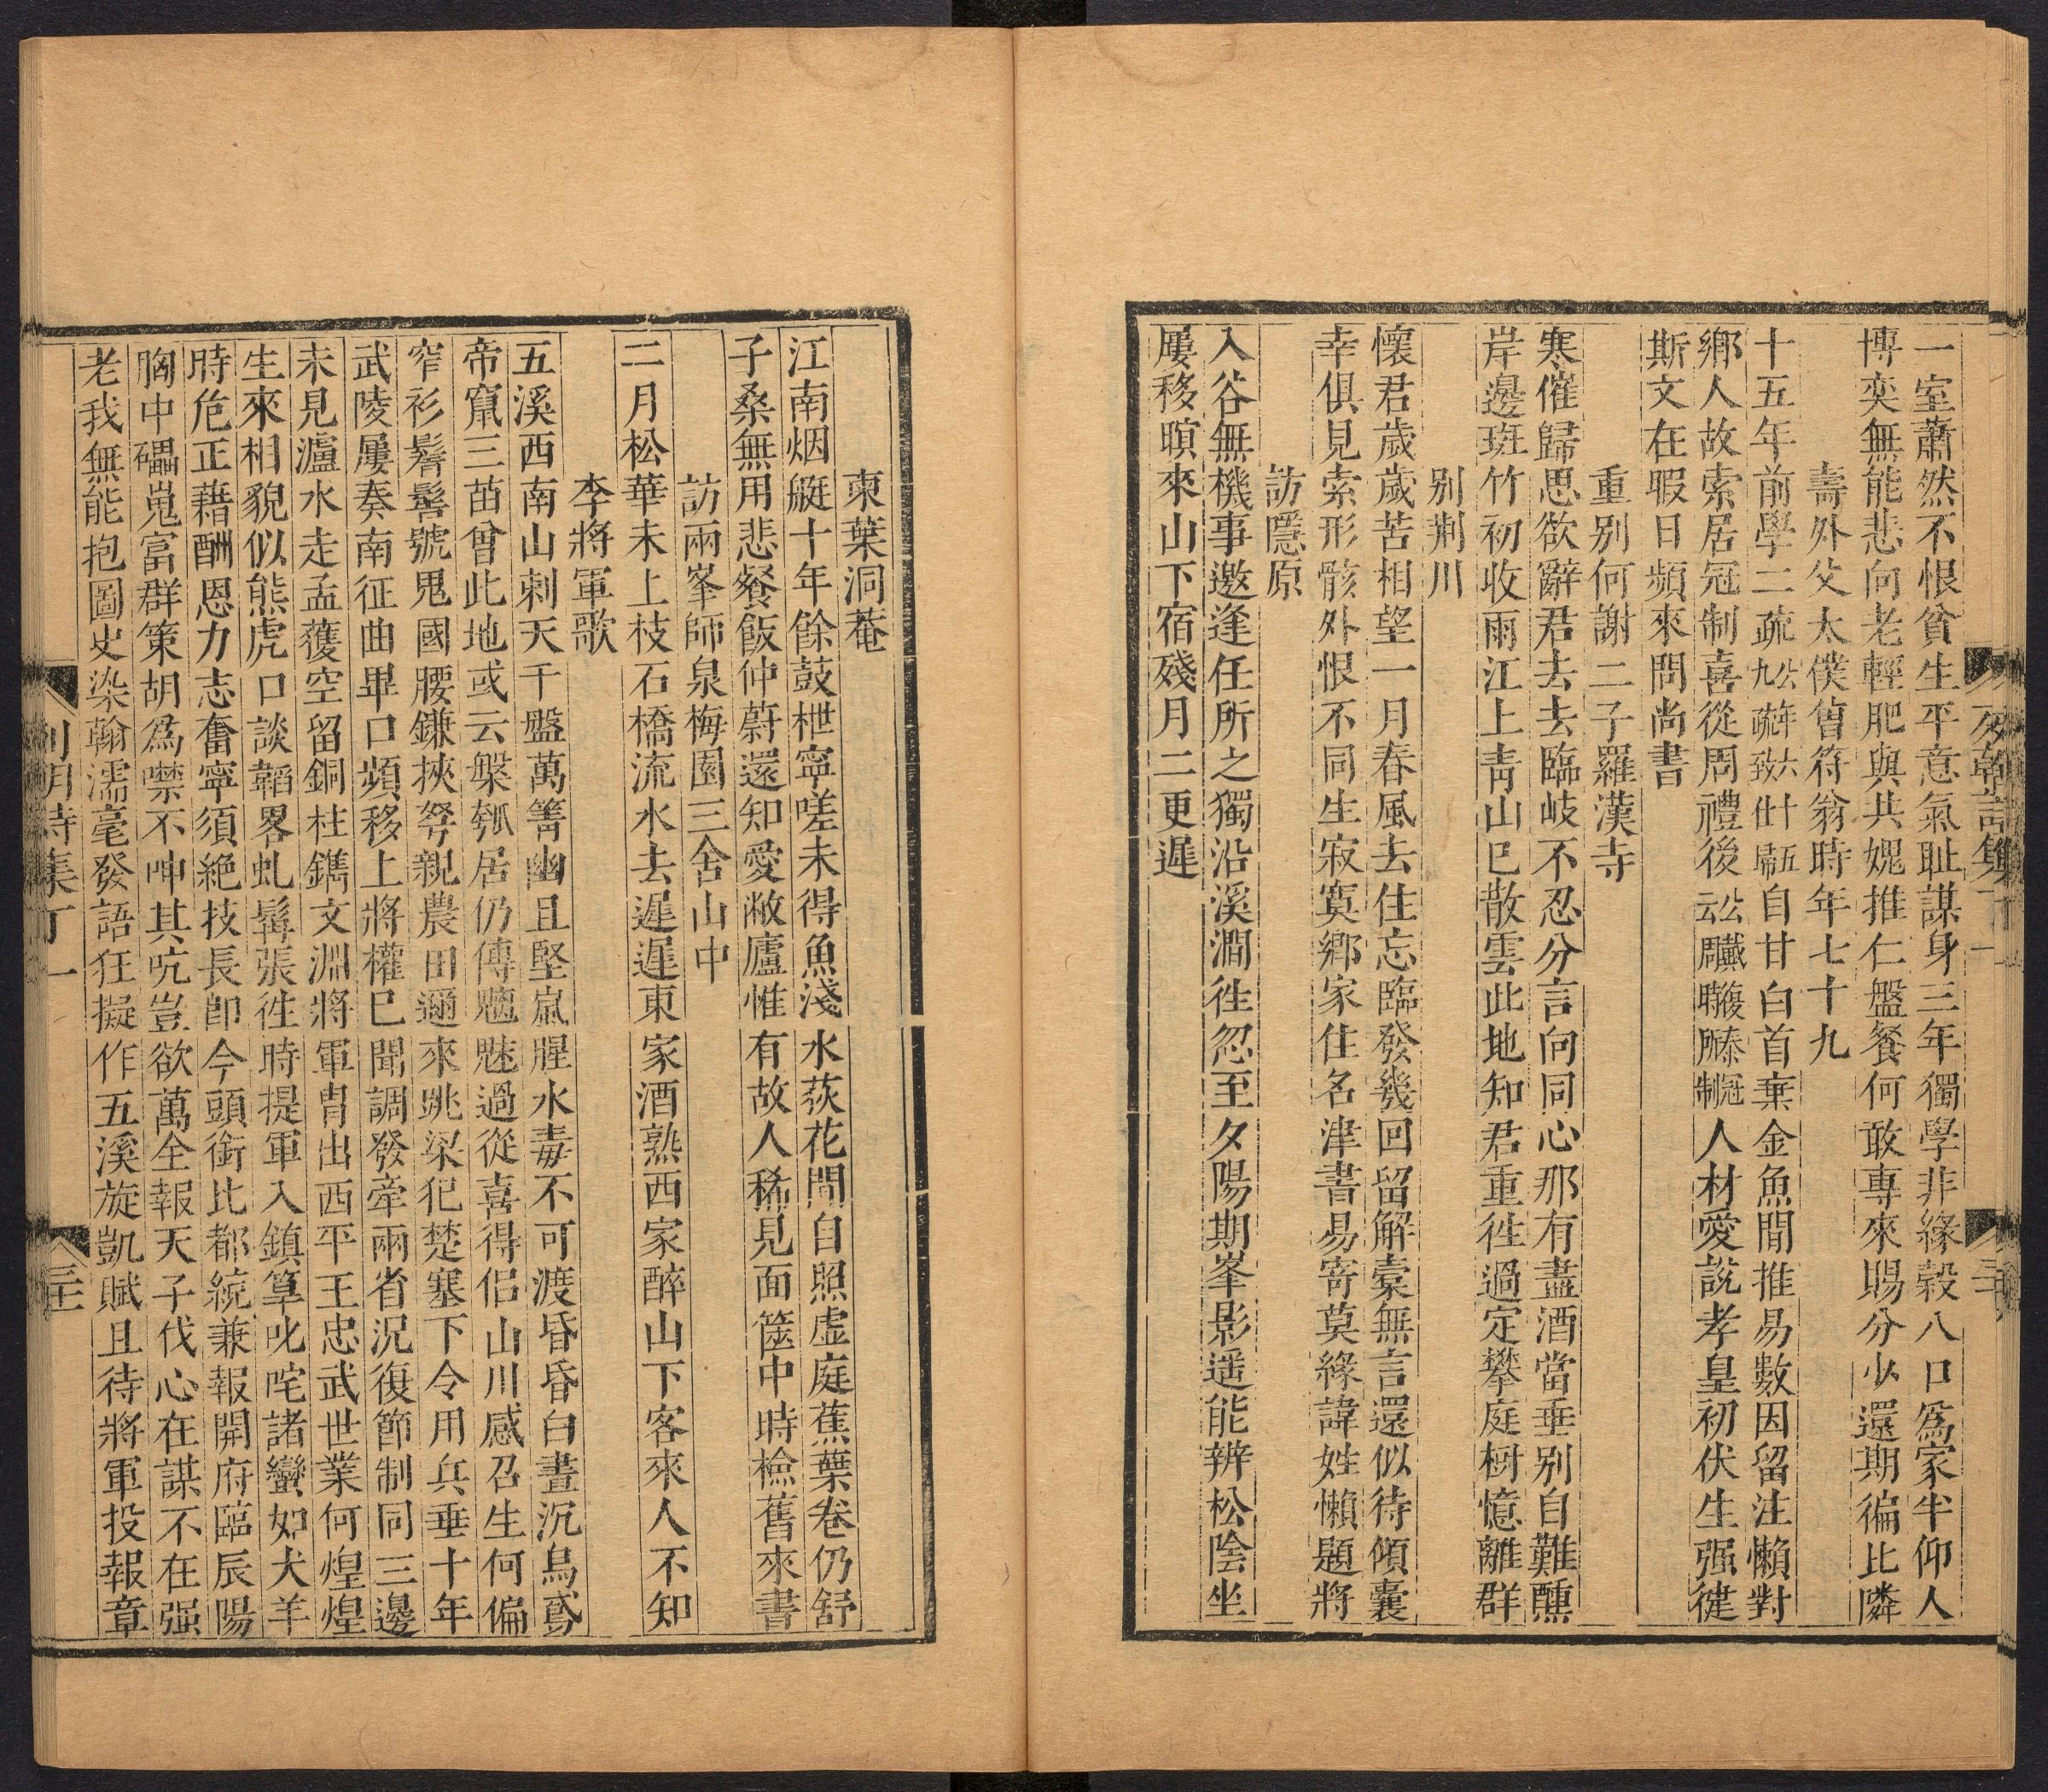 一室蕭然不恨貧生平意氣耻謀身三年獨學非緣榖八口爲家半仰人
博奕無能悲向老輕肥與共媿推仁盤餐何敢專來賜分少還期徧比隣
壽外父太僕舊符翁時年七十九
十五年前學二疏公年六十五九疏致仕歸自甘白首棄金魚閒推易數因留注懶對
鄉人故索居冠制喜從周禮後公臟腹泰冠云周聯所制人材愛說孝皇初伏生强健
斯文在暇日頻來問尚書
重别何謝二子羅漢寺
寒催歸思欲辭君去去臨岐不忍分言向同心那有盡酒當垂别自難醺
岸邊斑竹初收雨江上靑山已散雲此地知君重徃過定攀庭樹憶離群
别荆川
懷君歲歲苦相望一月春風去住忘臨發幾回留解橐無言還似待傾囊
幸俱見索形骸外恨不同生寂寞鄉家住名津書易寄莫緣諱姓懶題將
訪隱原
入谷無機事邀逢任所之獨沿溪澗徃忽至夕陽期峯影遥能辨松陰坐
屢移暝來山下宿殘月二更遲
東葉洞菴
江南烟艇十年餘鼓枻寧嗟未得魚淺水荻花間自照虚庭蕉葉卷仍舒
子桑無用悲餐飯仲蔚還知愛敝廬惟有故人稀見面篋中時檢舊來書
訪兩峯師泉梅園三舍山中
二月松華未上枝石橋流水去遲遲東家酒熟西家醉山下客來人不知
李將軍歌
五溪西南山刺天千盤萬箐幽且堅嵐腥水毒不可渡昏昏白晝沉烏鳶
帝竄三苗曾此地或云槃瓠居仍傳魑魅過從喜得侣山川感召生何偏
窄衫鬌髻號鬼國腰鎌挾弩親農田邇來跳梁犯楚塞下令用兵垂十年
武陵屢奏南征曲畢口頻移上將權已聞調發牽兩省況復節制同三邊
未見瀘水走孟獲空留銅柱鐫文淵將軍胄出西平王忠武世業何煌煌
生來相貌似熊虎口談韜畧虬髯張徃時提軍入鎮筸叱咤諸蠻如犬羊
時危正藉酬恩力志奮寧須絶技長卽今頭銜比都統兼報開府臨辰陽
胸中礧嵬富群策胡爲噤不呻其吭豈欲萬全報天子伐心在謀不在强
老我無能抱圖史染翰濡毫發語狂擬作五溪旋凱賦且待將軍投報章